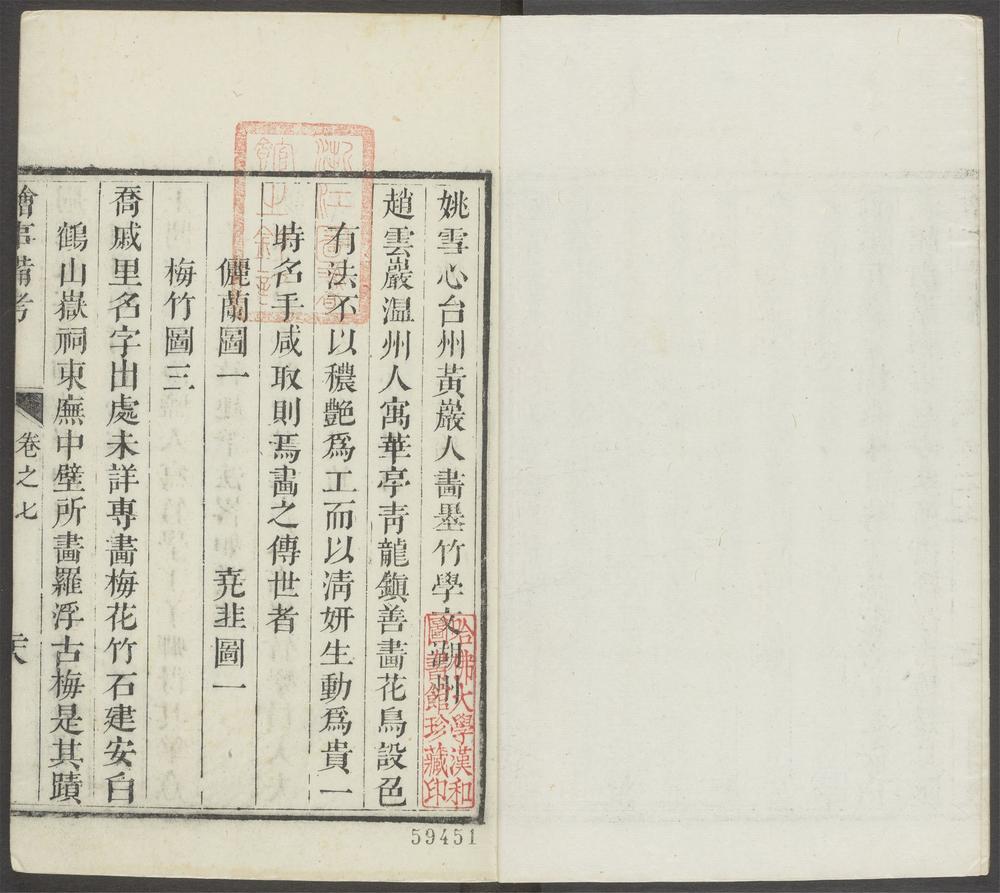 姚雪心台州黃巖人畵墨竹學文湖州
趙雲巖温州人寓華亭靑龍鎮善畵花鳥設色
有法不以穠艶爲工而以淸姸生動爲貴一
時名手咸取則焉畵之傳世者
儷蘭圖一　堯韭圖一
梅竹圖三
喬戚里名字出處未詳專畵梅花竹石建安白
鶴山嶽祠東廡中壁所畵羅浮古梅是其蹟
繪事備考
卷之七
哈佛大學漢和
圖書館珍藏印
59451